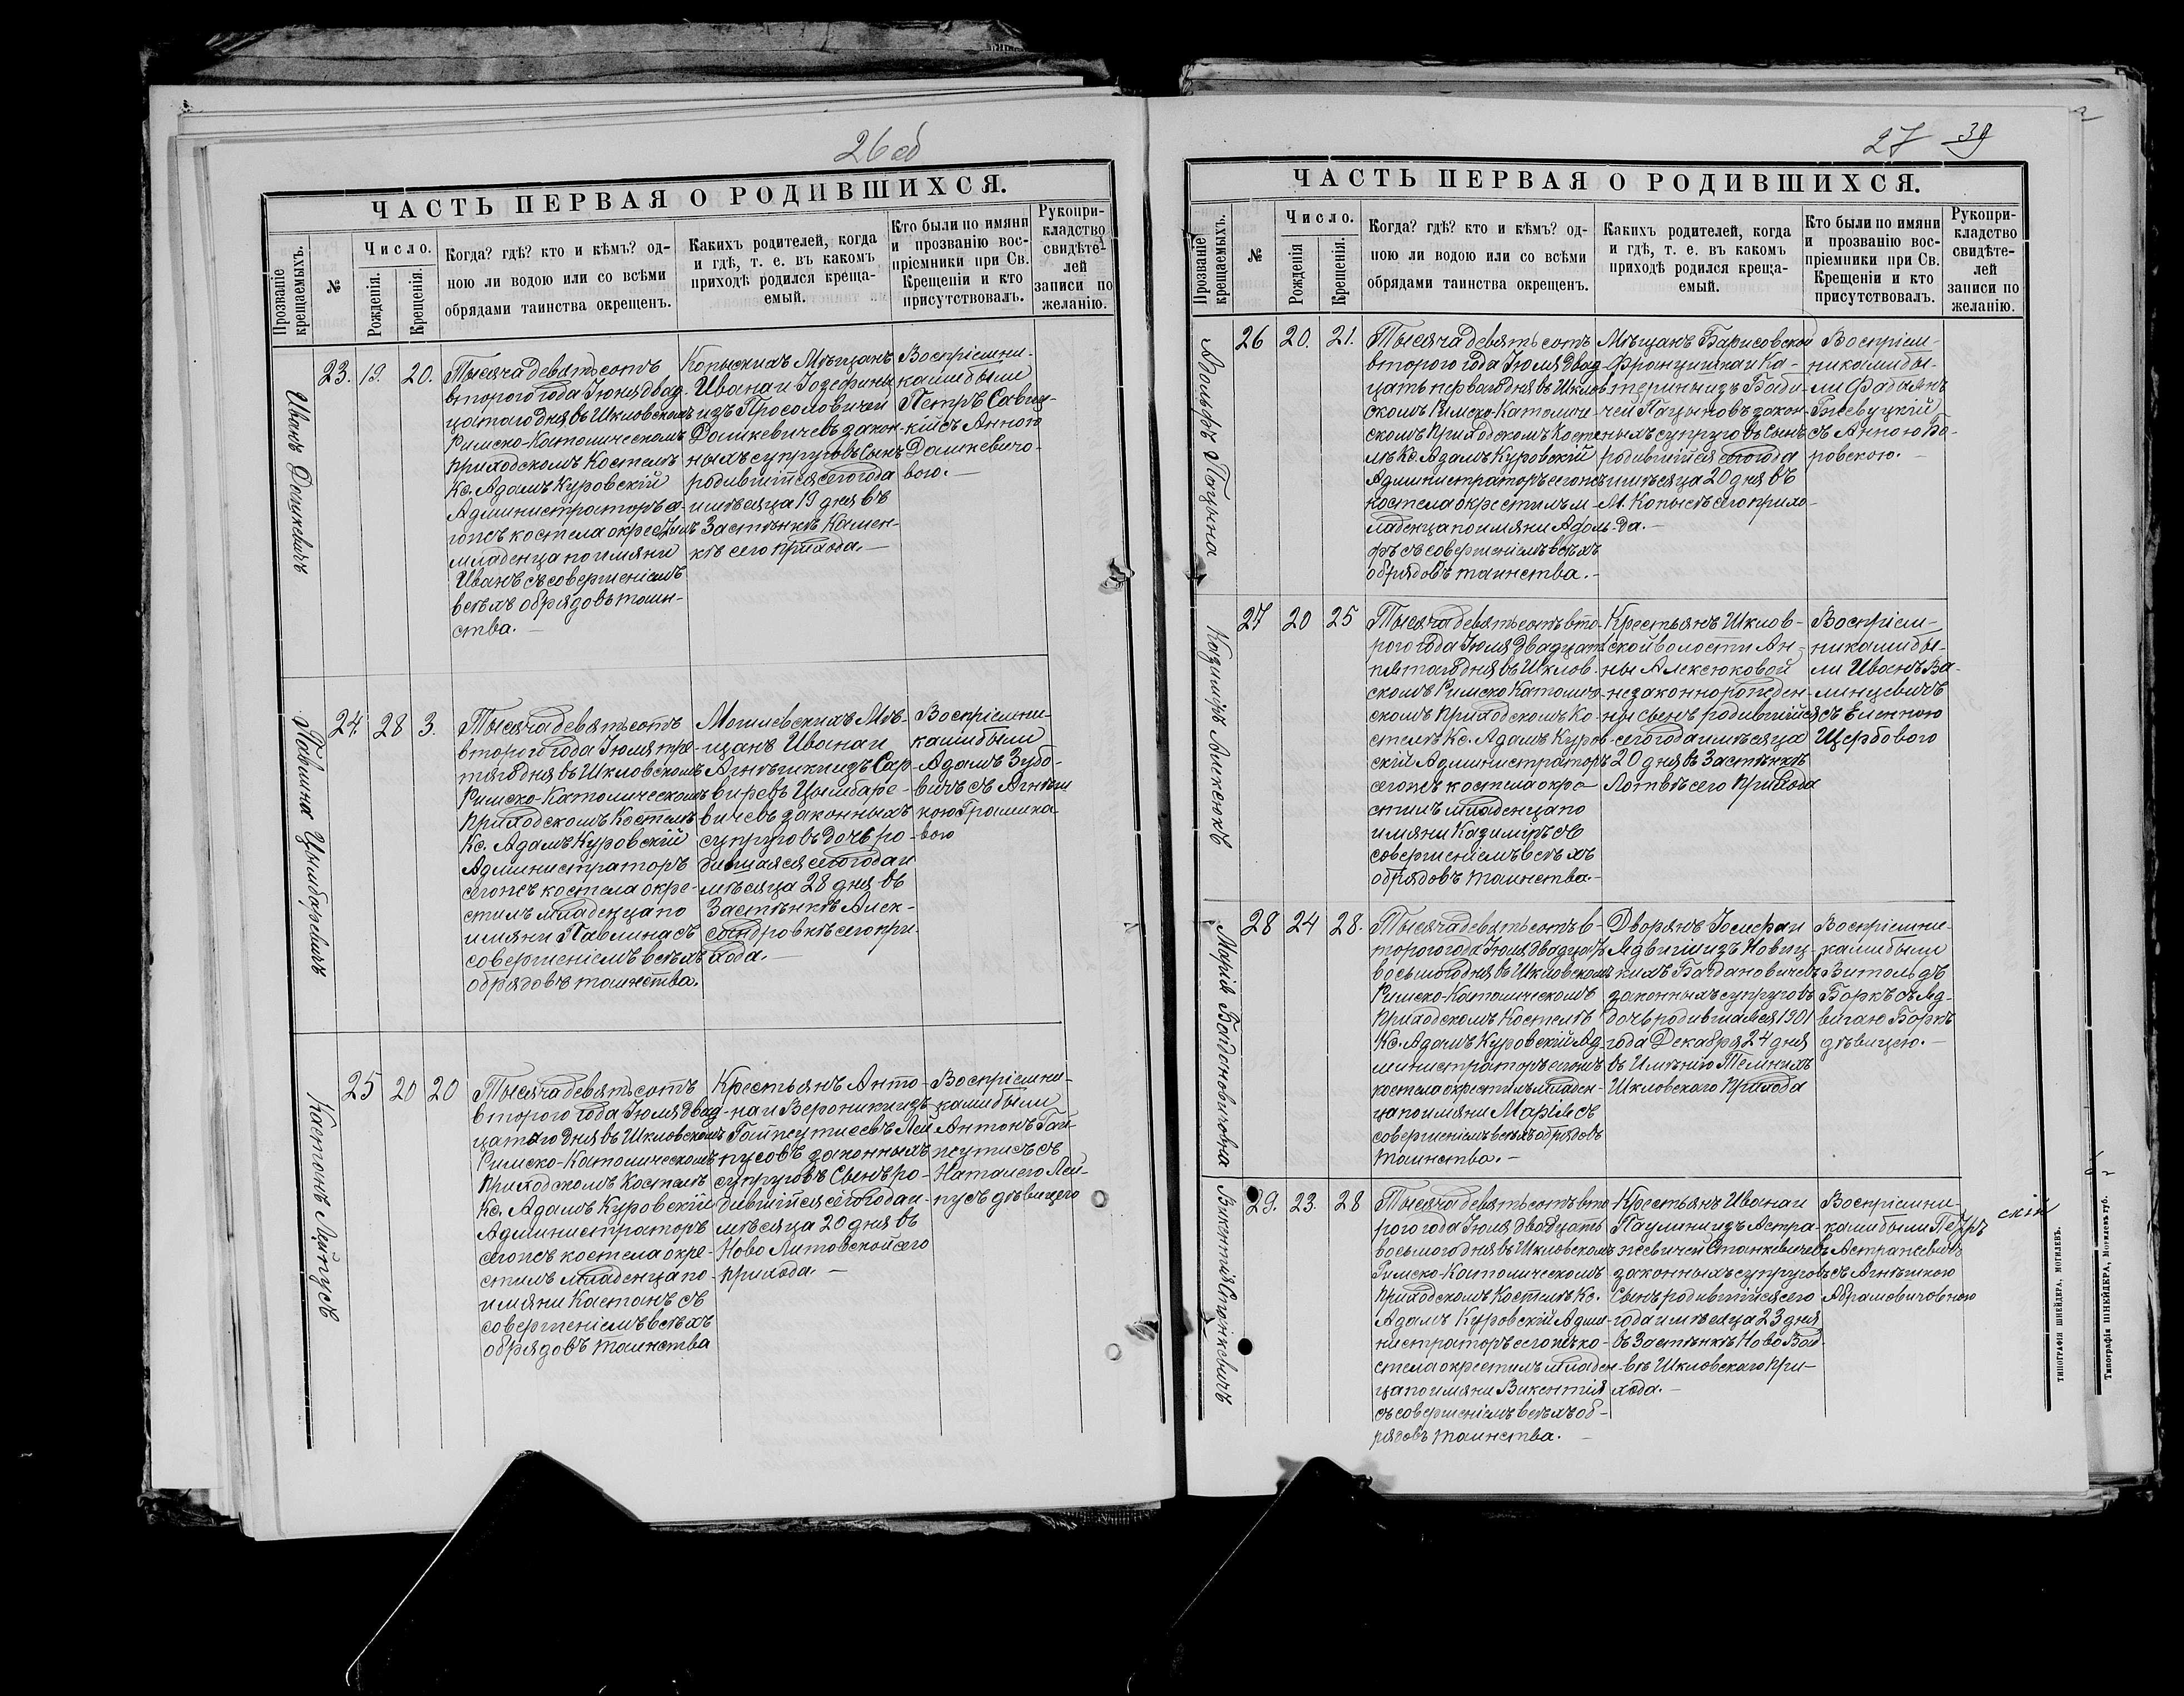 26 об
ЧАСТЬ ПЕРВАЯ О РОДИВШИХСЯ.
Прозваніе крещаемыхъ.
№
Число.
Рожденія.
Крещенія.
Когда? гдѣ? кто и кѣмъ? од-
ною ли водою или со всѣми
обрядами таинства окрещенъ.
Какихъ родителей, когда
и гдѣ, т. е. въ какомъ
приходѣ родился креща-
емый.
Кто были по имяни
и прозванію вос-
пріемники при Св.
Крещеніи и кто
присутствовалъ.
Рукопри-
кладство
свидѣте-
лей
записи по
желанію.
Иванъ Дашкевичъ
23. 19. 20.
Тысяча девятьсотъ
второго года Іюня двад-
цатаго дня въ Шкловскомъ
Римско-Католическомъ
приходскомъ Костелѣ
Кс. Адамъ Куровскій
Администраторъ е-
гожъ костела окрестилъ
младенца по имяни
Иванъ съ совершеніемъ
всѣхъ обрядовъ таин-
ства.
Копыскихъ Мѣщанъ
Ивана и Іозефины
изъ Просоловичей
Дашкевичевъ закон-
ныхъ супруговъ Сынъ
родившійся сего года
и мѣсяца 19 дня въ
Застѣнкѣ Камен-
кѣ сего прихода.
Воспріемни-
ками были
Петръ Савиц-
кій съ Анною
Дашкевичо-
вою.
Павлина Цымбаревичъ
24. 28 3.
Тысяча девятьсотъ
второго года Іюля тре-
тяго дня въ Шкловскомъ
Римско-Католическомъ
приходскомъ Костелѣ
Кс. Адамъ Куровскій
Администраторъ
сегожъ костела окре-
стилъ младенца по
имяни Павлина съ
совершеніемъ всѣхъ
обрядовъ таинства.
Могилевскихъ Мѣ-
щанъ Ивана и
Агнѣшки изъ Сар-
виревъ Цымбаре-
вичевъ законныхъ
супруговъ дочь ро-
дившаяся сего года и
мѣсяца 28 дня въ
Застѣнкѣ Алек-
сандровкѣ сего при-
хода.
Воспріемни-
ками были
Адамъ Зубо-
вичъ съ Агнѣш
кою Грашка
вою
Каетанъ Лейпусъ
25 20 20
Тысяча девятьсотъ
второго года Іюля двад-
цатаго дня въ Шкловскомъ
Римско-Католическомъ
приходскомъ Костелѣ
Кс. Адамъ Куровскій
Администраторъ
сегожъ костела окре-
стилъ младенца по
имяни Каетанъ съ
совершеніемъ всѣхъ
обрядовъ таинства
Крестьянъ Анто-
на и Вероники изъ
Гайжутисовъ Лей
пусовъ законныхъ
супруговъ Сынъ ро-
дившійся сего года и
мѣсяца 20 дня въ
Ново Литовской сего
прихода.
Воспріемни-
ками были
Антонъ Гай-
жутисъ съ
Наталею Лей-
пусъ дѣвицею
27 39
ЧАСТЬ ПЕРВАЯ О РОДИВШИХСЯ.
Прозваніе крещаемыхъ.
№
Число.
Рожденія
Крещенія.
Когда? гдѣ? кто и кѣмъ? од-
ною ли водою или со всѣми
обрядами таинства окрещенъ.
Какихъ родителей, когда
и гдѣ, т. е. въ какомъ
приходѣ родился креща-
емый.
Кто были по имяни
и прозванію вос-
пріемники при Св.
Крещеніи и кто
присутствовалъ.
Рукопри-
кладство
свидѣте-
лей
записи по
желанію.
Адольфъ Пацына
26 20. 21.
Тысяча девятьсотъ
второго года Іюля двад-
цать перваго дня въ Шклов
скомъ Римско-Католиче-
скомъ Приходскомъ Косте
лѣ Кс. Адамъ Куровскій
Администраторъ сегожъ
костела окрестилъ м-
ладенца по имяни Адоль-
фъ съ совершеніемъ всѣхъ
обрядовъ таинства.
Мѣщанъ Барисовской
Францишка и Ка-
терины изъ Бади-
чей Пацыновъ закон-
ныхъ супруговъ Сынъ
родившійся сего года
и мѣсяца 20 дня въ
М. Копысѣ сего прихо-
да.
Воспріем-
никами бы-
ли Фабіянъ
съ Анною Бо-
ровскою.
Казиміръ Алексюкъ
27 20 25
Тысяча девятьсотъ вто-
рого года Іюля двадцать
пятаго дня въ Шклов-
скомъ Римско Католиче-
скомъ приходскомъ Ко-
стелѣ Кс. Адамъ Куров-
скій Администраторъ
сегожъ костела окре-
стилъ младенца по
имяни Казиміръ съ
совершеніемъ всѣхъ
обрядовъ таинства.
Крестьянъ Шклов-
ской волости Ан-
ны Алексюковой
незаконнорожден-
ны сынъ родившійся
сего года и мѣсяца
20 дня въ Застѣнкѣ
Лотвѣ сего прихода
Воспріем-
никами бы-
ли Иванъ Ва-
линцевичъ
съ Еленою
Щербового
Марія Багдановичовна
28 24 28.
Тысяча девятьсотъ в-
торого года Іюля двадцать
восьмого дня въ Шкловскомъ
Римско-Католическомъ
приходскомъ Костелѣ
Кс. Адамъ Куровскій Ад-
министраторъ сегожъ
костела окрестилъ младен-
ца по имяни Марія съ
совершеніемъ всѣхъ обрядовъ
таинства.
Дворянъ Іосифа и
Ядвигіи изъ Новиц-
кихъ Багдановичевъ
законныхъ супруговъ
дочь родившаяся 1901
года Декабря 24 дня
въ Имѣнію Темныхъ
Шкловскаго прихода
Воспріемни-
ками были
Витольдъ
Боркъ съ Яд-
вигаю Боркъ
дѣвицею.
Викентій Станкевичъ
29. 23. 28
Тысяча девятьсотъ вто
рого года Іюля двадцать
восьмого дня въ Шкловскомъ
Римско-Католическомъ
приходскомъ Костелѣ Кс.
Адамъ Куровскій Адми-
нистраторъ сегожъ ко-
стела окрестилъ младен-
ца по имяни Викентія
съ совершеніемъ всѣхъ об-
рядовъ таинства.
Крестьянъ Ивана и
Паулины изъ Астра-
жевичей Станкевичевъ
законныхъ супруговъ
Сынъ родившійся сего
года и мѣсяца 23 дня
въ Застѣнкѣ Ново
Шкловскаго при-
хода.
Воспріемни-
ками были Петръ
Астражевичъ
съ Агнѣшкою
Абрамовичовною
скій
ТИПОГРАФІЯ ШНЕЙДЕРА, МОГИЛЕВЪ.
Типографія ШНЕЙДЕРА, Могилевъ губ.